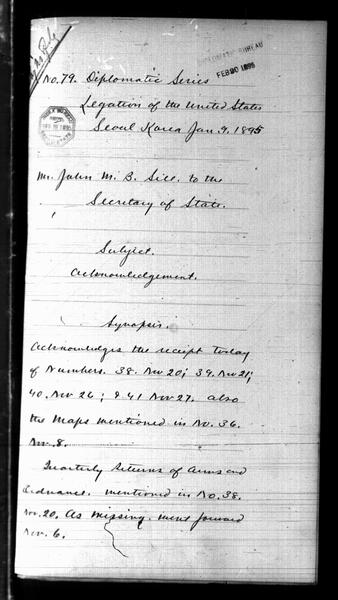 DIPLOMATIC BUREAU
FEB 20 1895
No. 79. Diplomatic Series
Legation of the United States
Seoul Korea Jan. 9. 1895
Mr. John M. B. Sill. to the
Secretary of State.
Subject.
Acknowledgement.
Synopsis.
Acknowledges the receipt today
of Numbers. 38. Nov 20; 39. Nov 21;
40. Nov 26; & 41 Nov 27. also
the Maps mentioned in No. 36.
Nov. 8.
Quarterly Returns of Arms and
Ordnance. mentioned in No. 38.
Nov. 20. As missing. went forward
Nov. 6.